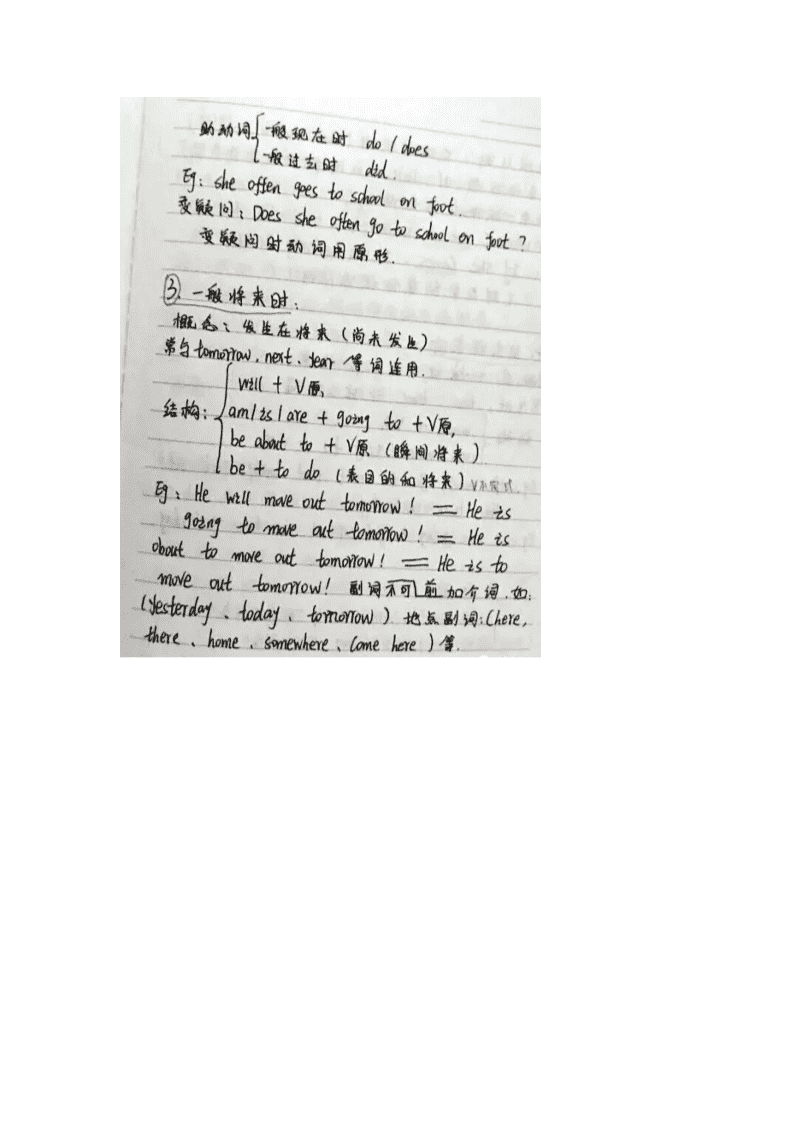 助动词{一般现在时 do / does
一般过去时 did.
Eg: she often goes to school on foot.
变疑问: Does she often go to school on foot ?
变疑问时动词用原形.
③. 一般将来时:
概念: 发生在将来 (尚未发生)
常与tomorrow、next、year 等词连用.
will + V原,
结构: {am/is/are + going to + V原,
be about to + V原 (瞬间将来)
be + to do (表目的和将来) V不定式.
Eg: He will move out tomorrow! = He is
going to move out tomorrow! = He is
about to move out tomorrow! = He is to
move out tomorrow! 副词不可前加介词.如:
(yesterday、today、tomorrow) 地点副词:(here,
there、home、somewhere、come here)等.